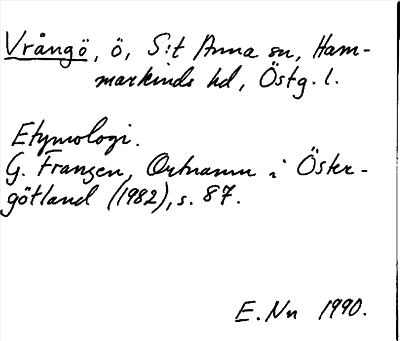 Vrångö, ö, S:t Anna sn, Ham-
markinds hd, Östg. l.
Etymologi.
G. Franzén, Ortnamn i Öster-
götland (1982), s. 87.
E. Nn 1990.